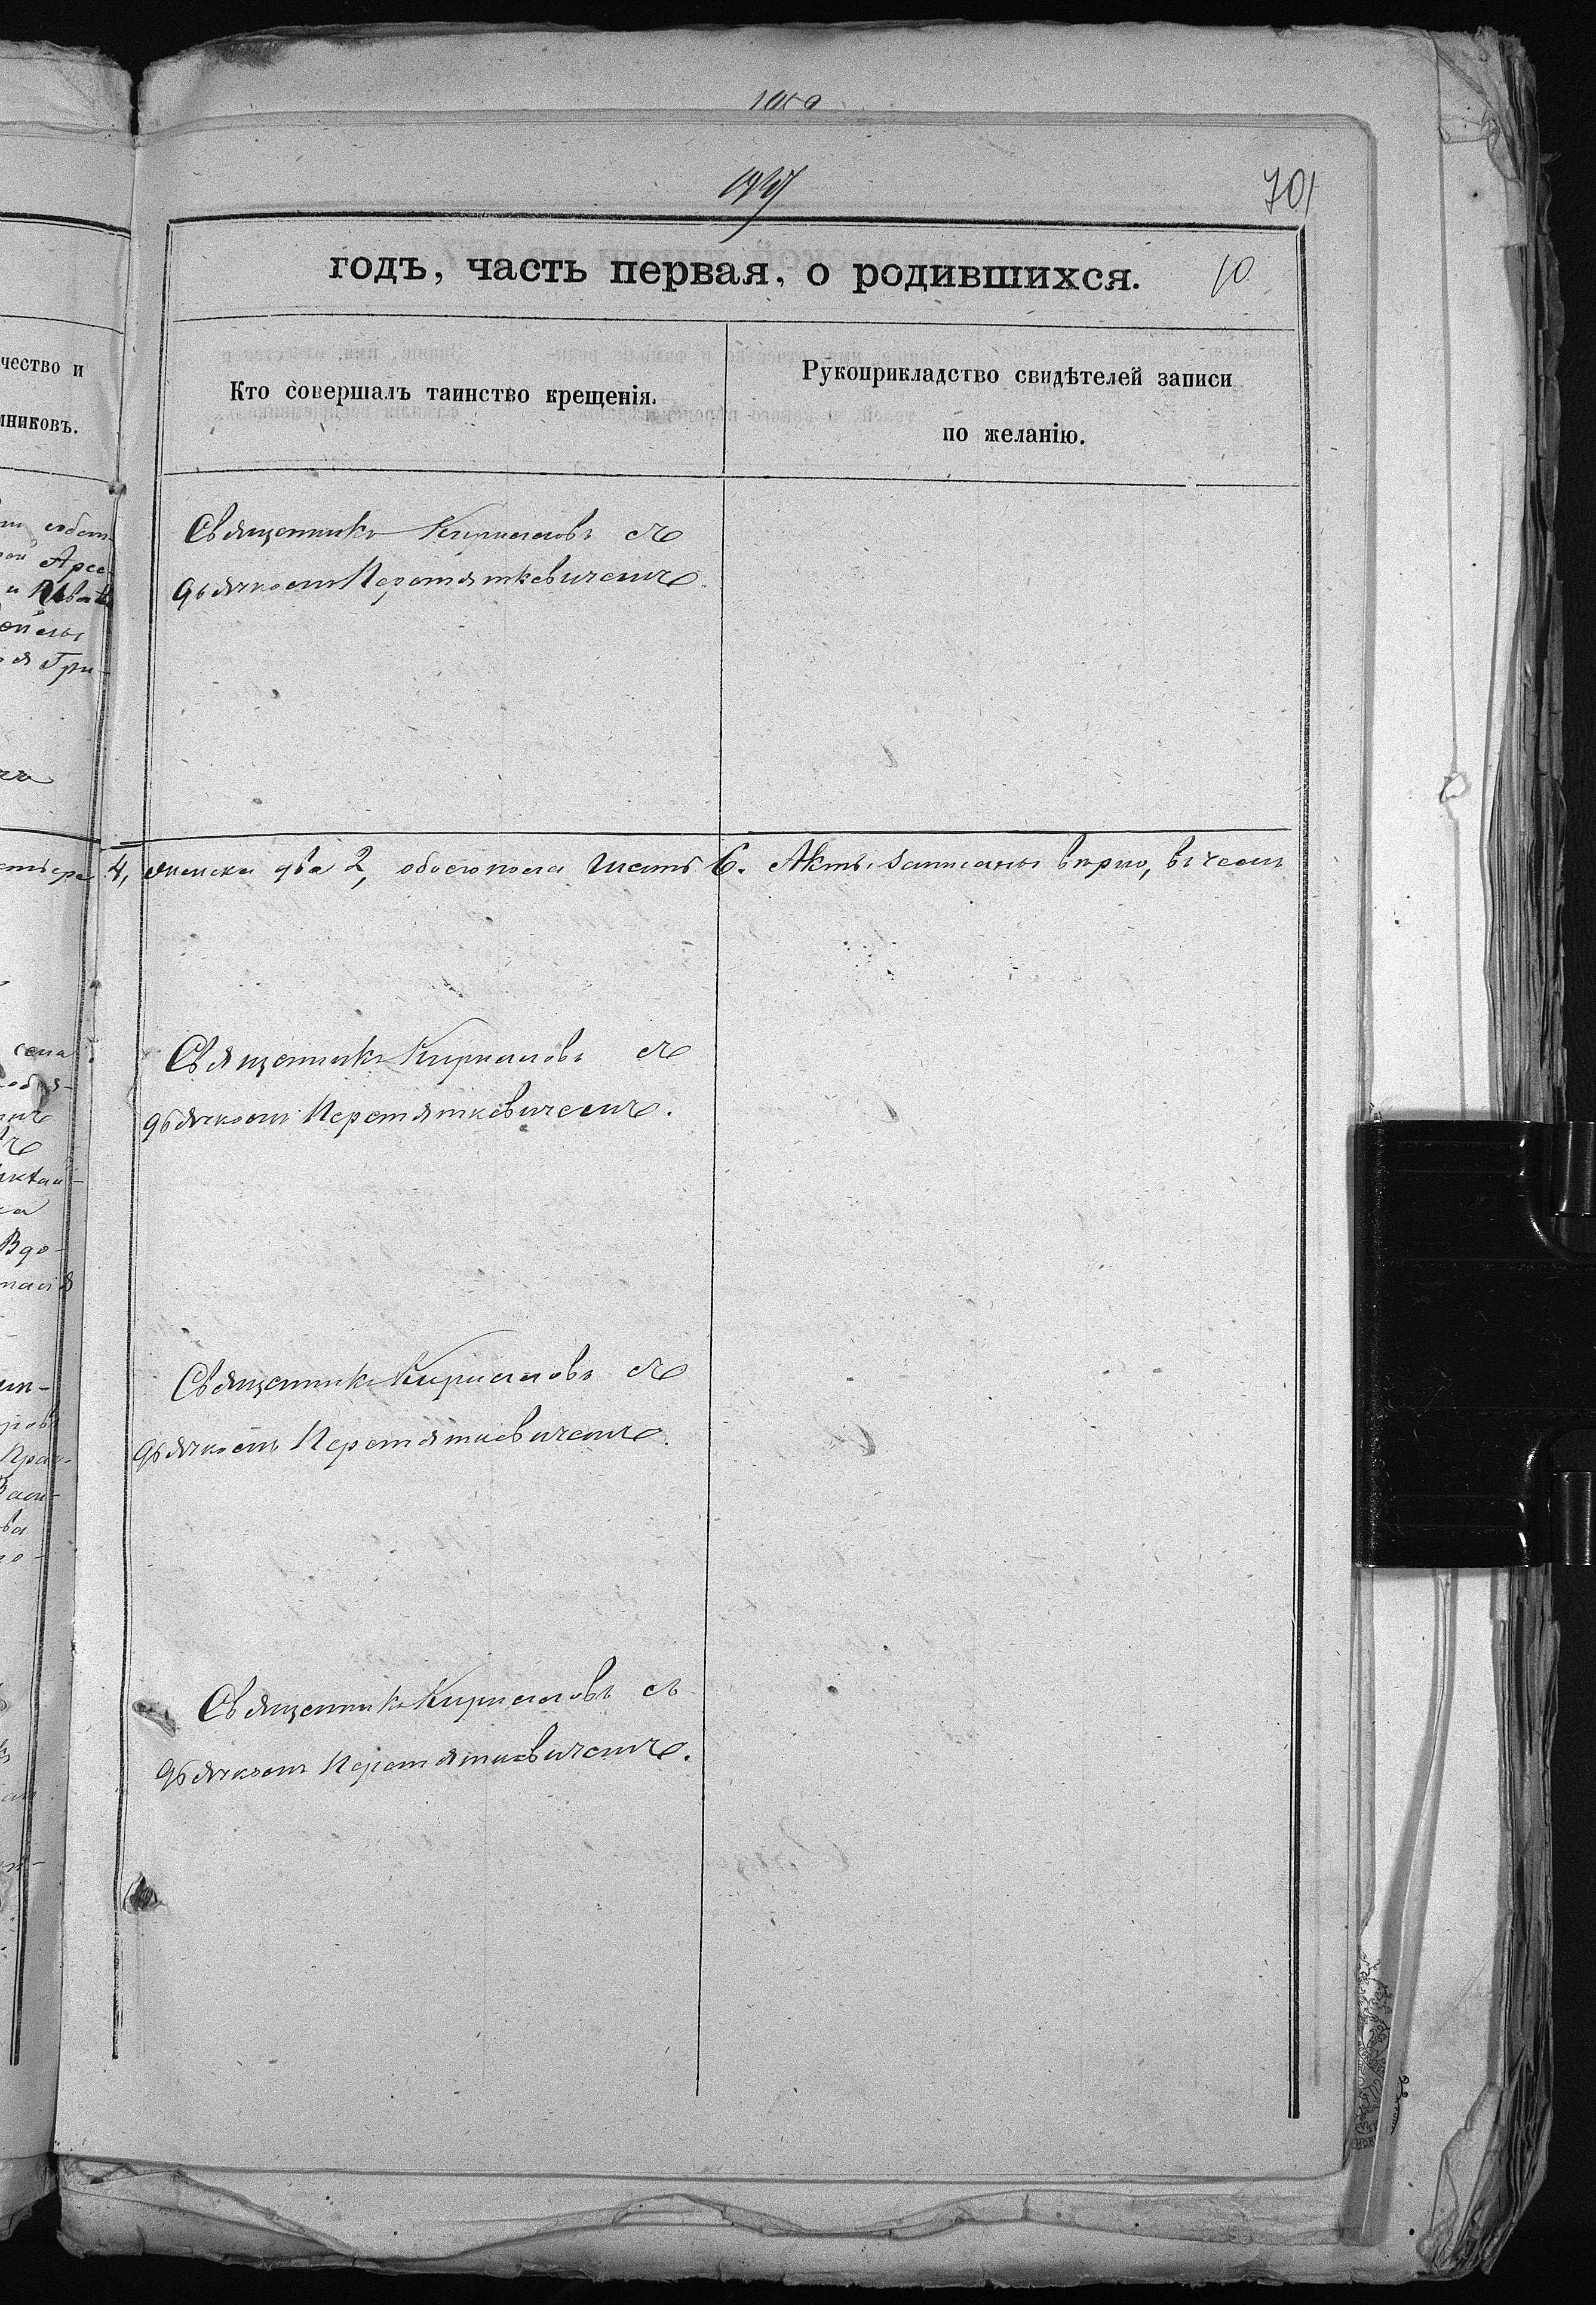 701
годъ, часть первая, о родившихся. 10
чество и
мниковъ.
Кто совершалъ таинство крещенія.
Рукоприкладство свидѣтелей записи
по желанію.
Арсе-
Гри-
Священникъ Кирилловъ съ
дьячкомъ Перетяткевичемъ.
4, женска два 2, обоего пола шесть 6. Акты записаны вѣрно, въ чемъ
Священникъ Кирилловъ съ
дьячкомъ Перетяткевичемъ.
села
Вдо-
Священникъ Кирилловъ съ
дьячкомъ Перетяткевичемъ.
Священникъ Кирилловъ съ
дьячкомъ Перетяткевичемъ.